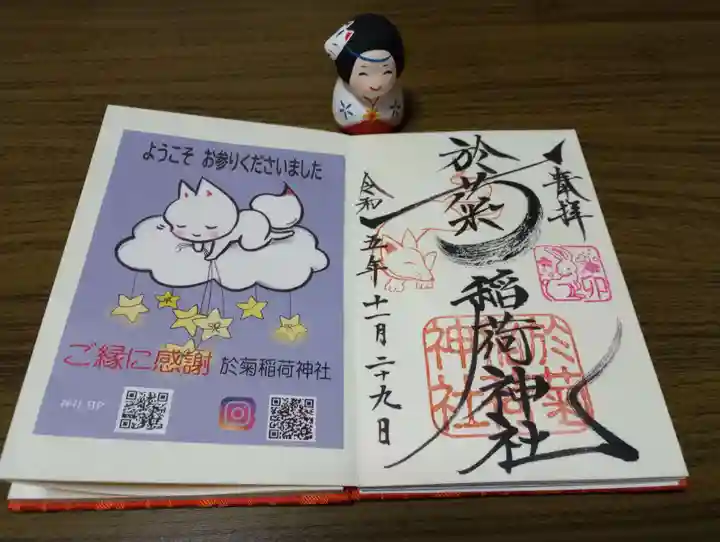 ようこそ お参りくださいました
ご縁に感謝 於菊稲荷神社
奉拝
於菊稲荷神社
令和五年十一月二十九日
卯
於菊
稲荷
神社